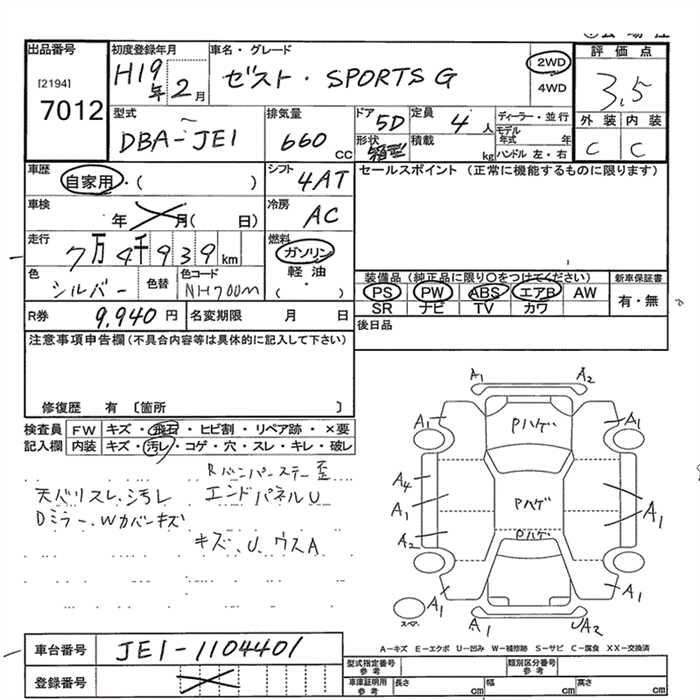 出品番号
[2194]
7012
初度登録年月
H19年 2月
車名・グレード
ゼスト・SPORTS G
2WD
4WD
評価点
3.5
型式
DBA-JE1
排気量
660 CC
ドア 5D
形状 箱型
定員 4人
積載 kg
ディーラー・並行
モデル年式 年
ハンドル 左・右
外装 内装
C C
車歴
自家用・( )
シフト
4AT
セールスポイント (正常に機能するものに限ります)
車検
年 月( 日)
冷房
AC
走行
7万4千939km
燃料
ガソリン
軽油
( )
色
シルバー
色替
色コード
NH700M
装備品 (純正品に限り○をつけてください)
PS PW ABS エアB AW
SR ナビ TV カワ
新車保証書
有・無
R券 9,940円
名変期限 月 日
後日品
注意事項申告欄(不具合内容等は具体的に記入して下さい)
修復歴 有〔箇所 〕
検査員記入欄
FW キズ・飛石・ヒビ割・リペア跡・×要
内装 キズ・汚レ・コゲ・穴・スレ・キレ・破レ
Rバンパーステー歪
天バリスレ、汚レ エンドパネルU
Dミラー、Wカバーキズ
キズ、U、ウスA
A1 A2
A1 Pハゲ A1
A4
A1 Pハゲ A1
A2 Pハゲ
A1 A1
スペア A1 UA2
A-キズ E-エクボ U-凹み W-補修跡 S-サビ C-腐食 XX-交換済
車台番号 JE1-1104401
登録番号
型式指定番号 参考
類別区分番号 参考
車庫証明用 参考 長さ cm 幅 cm 高さ cm